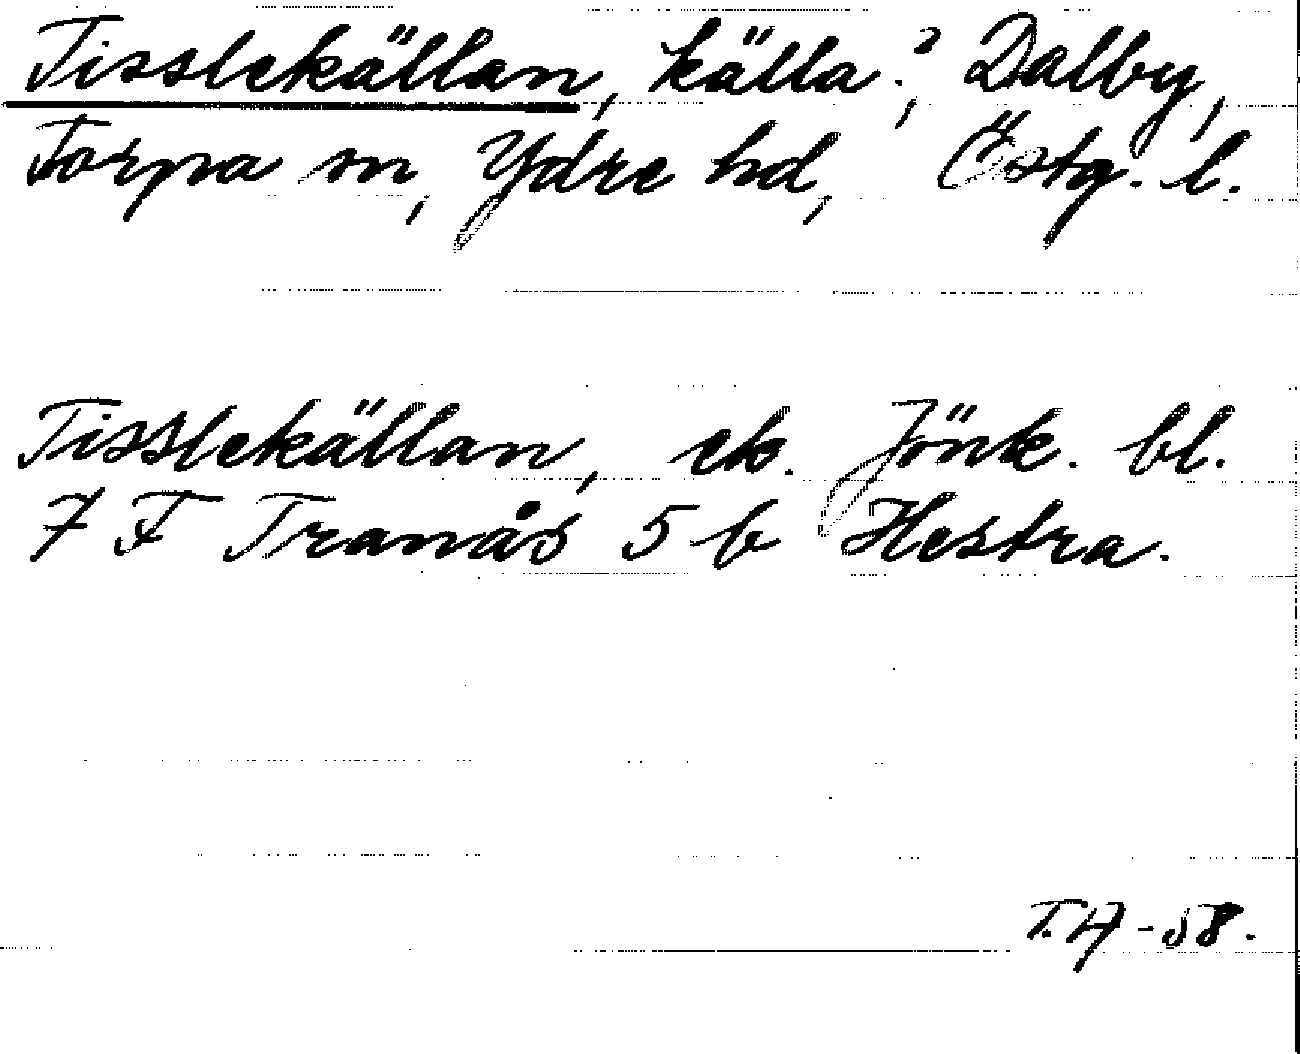 Tisslekällan, källa?, Dalby,
Torpa sn, Ydre hd, Östg. l.
Tisslekällan, ek. Jönk. bl.
7 F Tranås 5 b Hestra.
T.H -58.